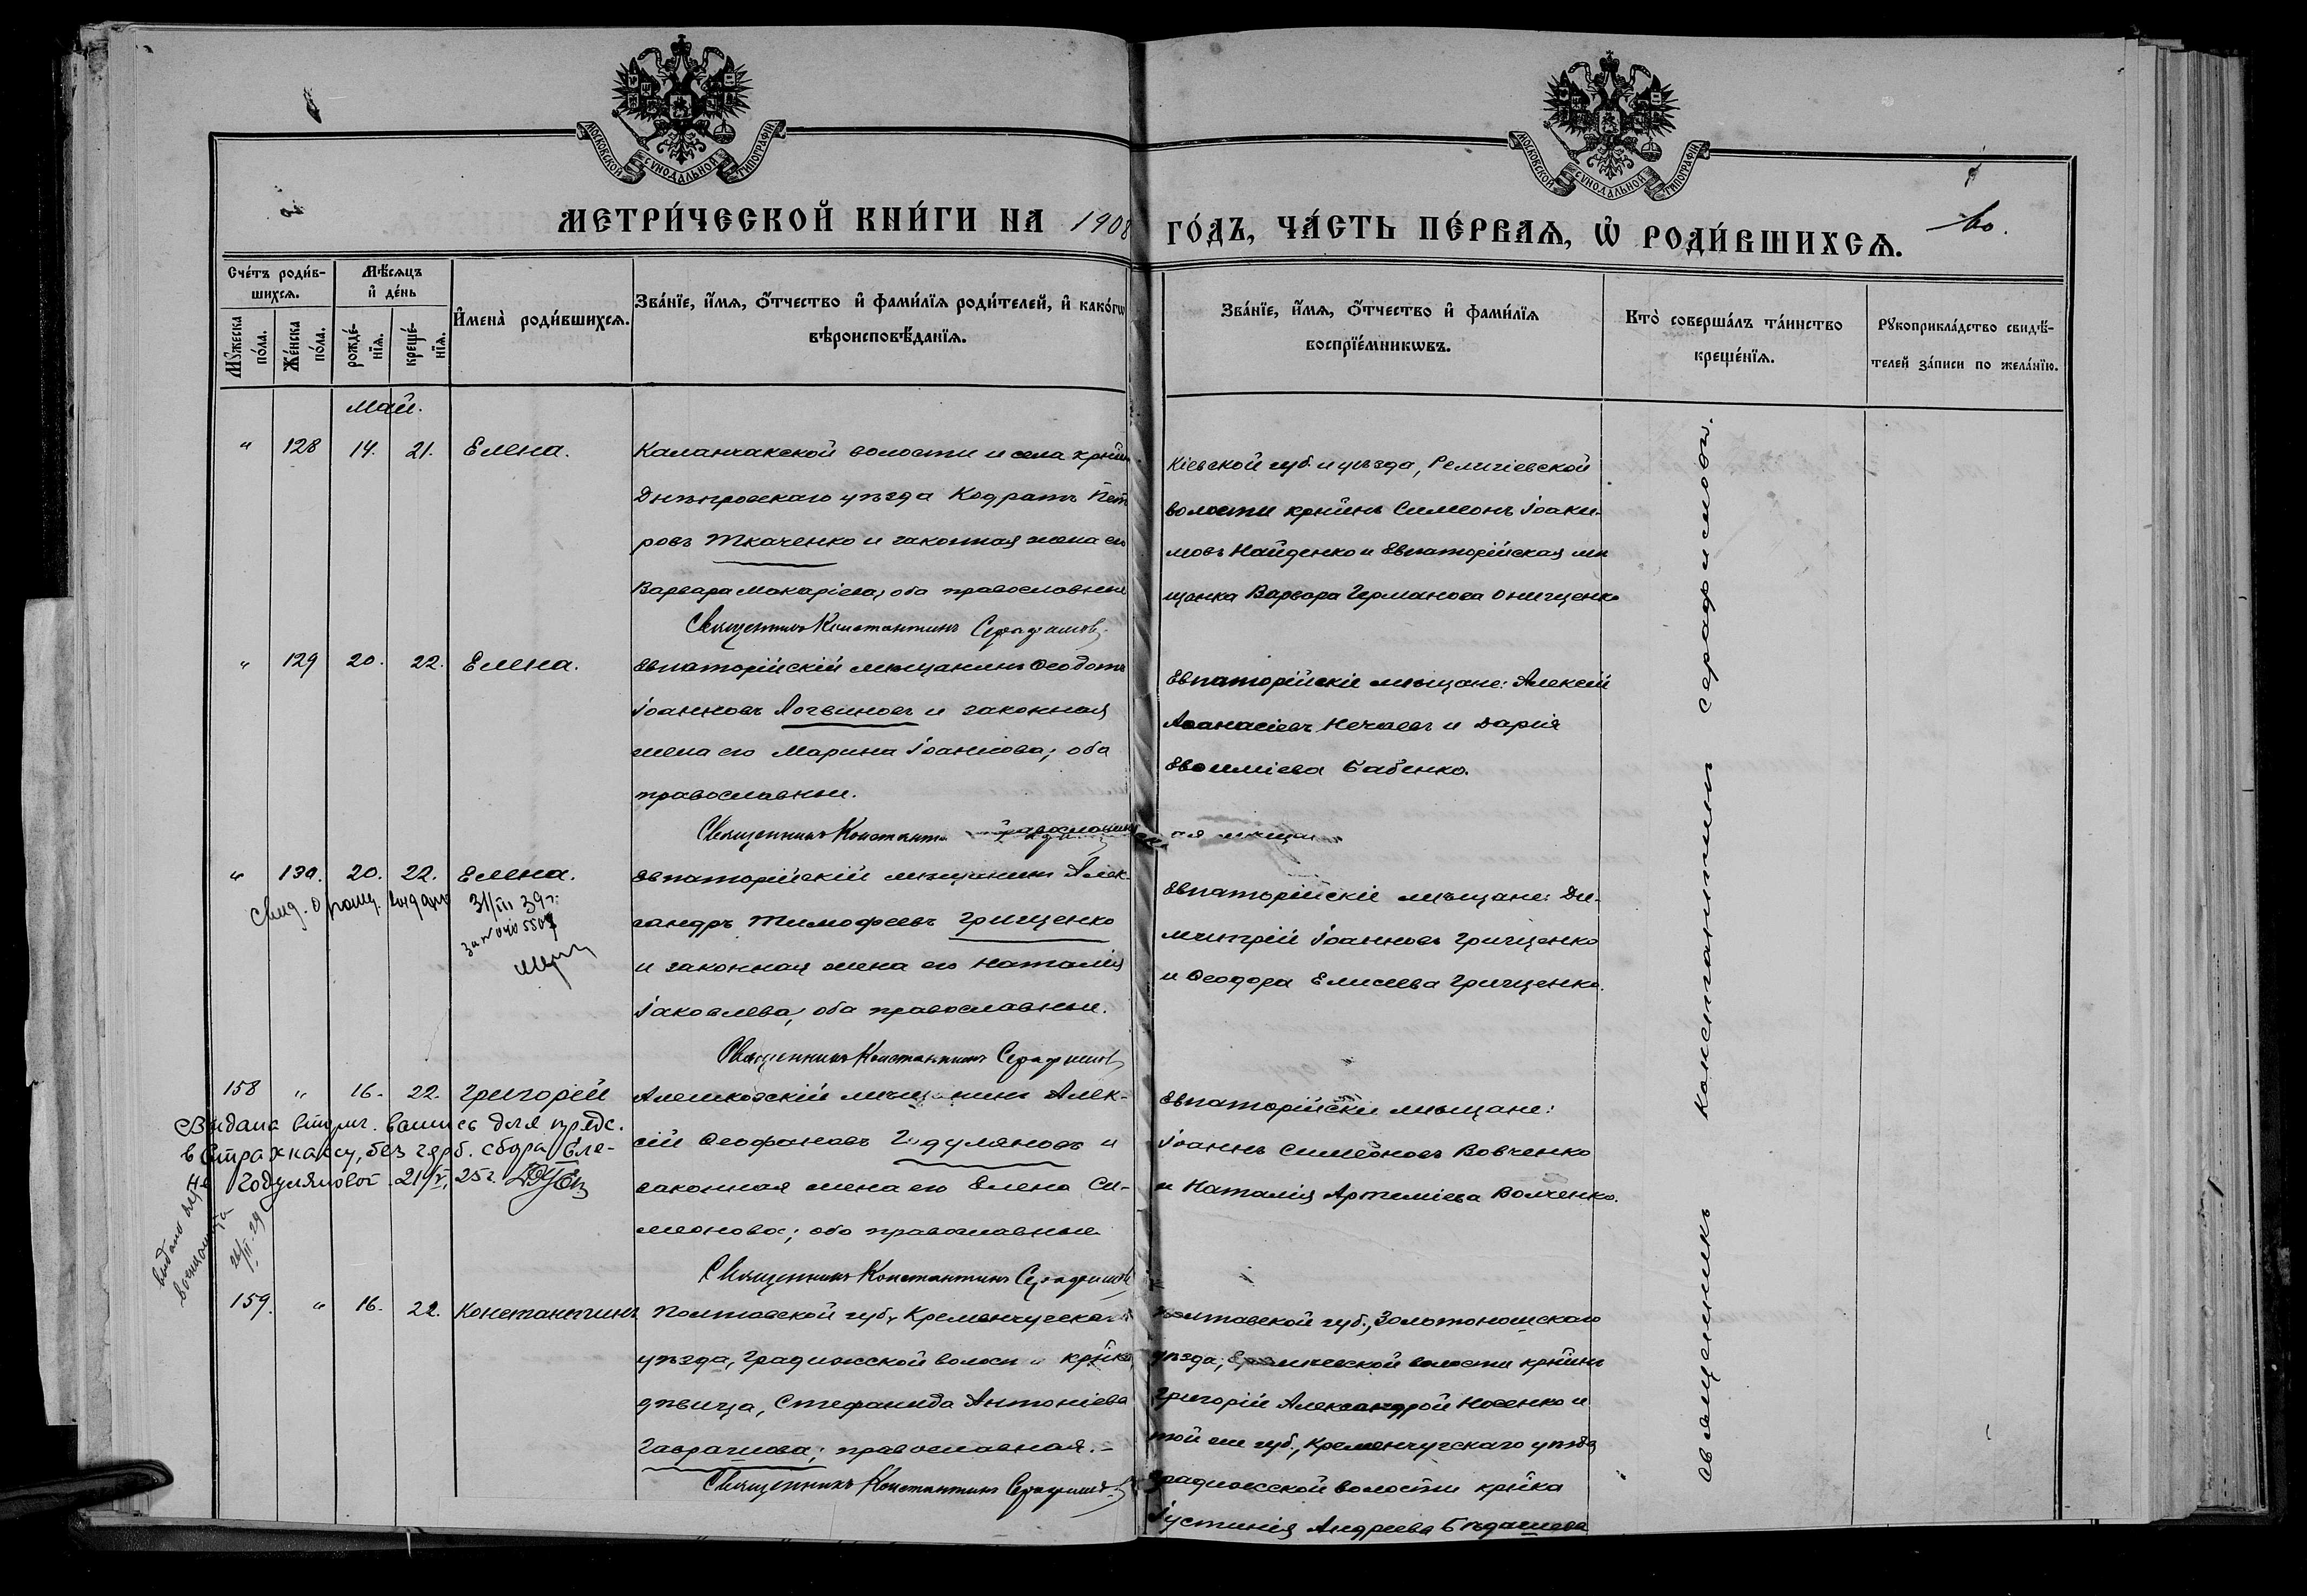 МОСКОВСКОЙ СѴНОДАЛЬНОЙ ТИПОГРАФІИ
МОСКОВСКОЙ СѴНОДАЛЬНОЙ ТИПОГРАФІИ
МЕТРИ́ЧЕСКОЙ КНИ́ГИ НА 1908 ГО́ДЪ, ЧА́СТЬ ПЕ́РВАѦ, Ѡ҆ РОДИ́ВШИХСѦ.
Сче́тъ роди́в-
шихсѧ.
Мѣ́сѧцъ
и҆ де́нь
Мꙋ́жеска
по́ла.
Же́нска
по́ла.
рожде́-
нїѧ.
креще́-
нїѧ.
И҆мена̀ роди́вшихсѧ.
Зва́нїе, и҆́мѧ, ѻ҆́тчество и҆ фами́лїѧ роди́телей, и҆ како́гѡ
вѣроисповѣ́данїѧ.
Зва́нїе, и҆́мѧ, ѻ҆́тчество и҆ фами́лїѧ
воспрїе́мникѡвъ.
Кто̀ соверша́лъ та́инство
креще́нїѧ.
Рꙋкоприкла́дство свидѣ́-
телей за́писи по жела́нїю.
Май.
" 128 14. 21. Елена.
Каланчакской волости и села
Днѣпровскаго уѣзда Кодратъ Пет
ровъ Ткаченко и законная жена его
Варвара Макаріева, оба православные
Священникъ Константинъ Серафимовъ
Кіевской губ. и уѣзда,
волости крнинъ Симеонъ Іоаки-
мовъ Найденко и Евпаторійская мѣ
щанка Варвара Германова Онищенко
" 129 20. 22. Елена.
Евпаторійскій мѣщанинъ Ѳеодотъ
Іоанновъ Логвиновъ и законная
жена его Марина Іоаннова; оба
православные.
Священникъ Константи
Евпаторійскіе мѣщане: Алексѣй
Аѳанасіевъ Нечаевъ и Дарія
Евѳиміева Бабенко.
" 130. 20. 22. Елена.
Свид. о рожд. выдано 31/III 39 г.
за №
Евпаторійскій мѣщанинъ Алек-
сандръ Тимофеевъ Грищенко
и законная жена его Наталія
Іаковлева, оба православные.
Священникъ Константинъ Серафимовъ
Евпаторійскіе мѣщане: Ди-
митрій Іоанновъ Грищенко
и Ѳеодора Елисеева Грищенко.
158 " 16. 22. Григорій
Выдана вторич. выпись для предс.
в Страхкассу, без герб. сбора Еле-
не Годуляновой 21/V 25 г.
26/II 29
Алешковскій мѣщанинъ Алек-
сій Ѳеофановъ Годуляновъ и
законная жена его Елена Си-
меонова; оба православные
Священникъ Константинъ Серафимовъ
Евпаторійскіе мѣщане:
Іоаннъ Симеоновъ Вовченко
и Наталія Артеміева Волченко.
159. " 16. 22. Константинъ
Полтавской губ., Кременчугскаго
уѣзда, Градижской волости
дѣвица, Стефанида Антоніева
православная.
Священникъ Константинъ Серафимовъ
Полтавской губ., Золотоношскаго
уѣзда, волости крнинъ
Григорій Носенко и
той же губ., Кременчугскаго уѣзда
Градижской волости
Іустинія Андреева
Священникъ Константинъ Серафимовъ.